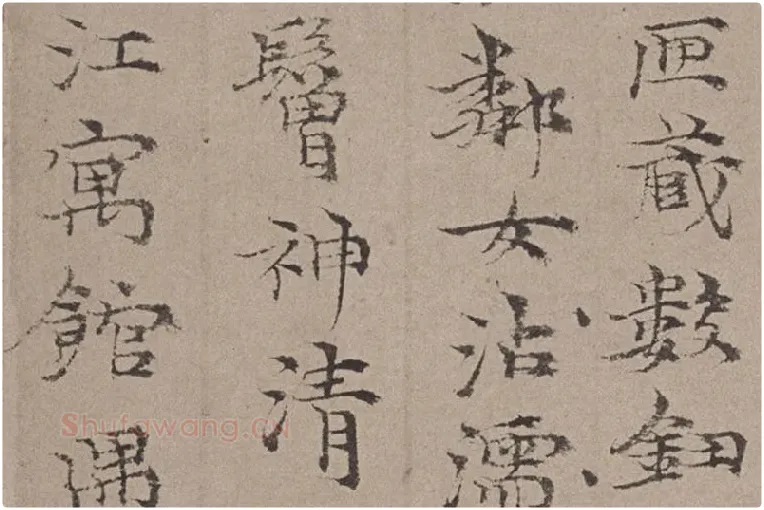 匣藏數鈿
鄰女沾濡
神清
江寓館
Shufawang.cn